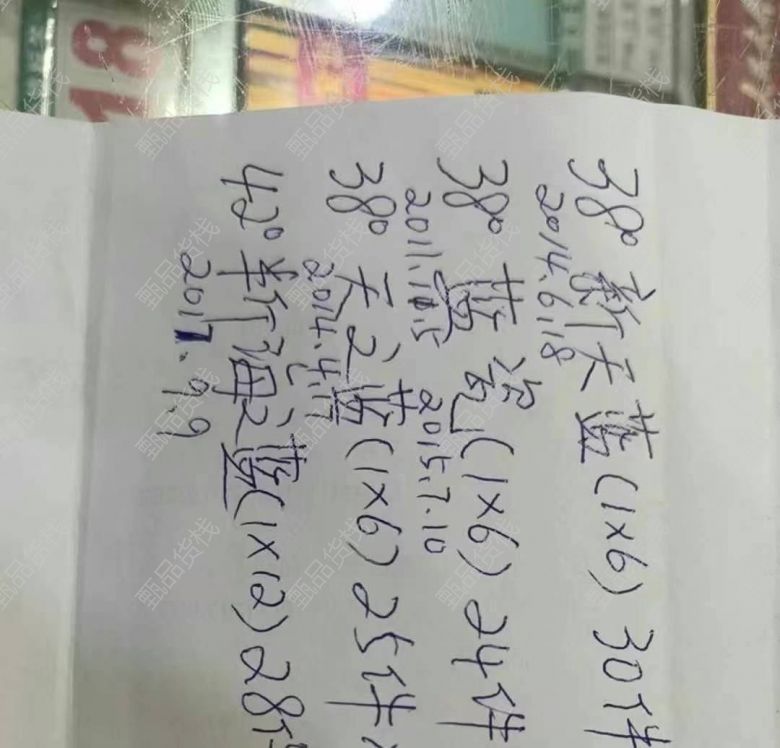 38° 新天蓝 (1×6) 30件
2014.6.18
38° 蓝瓷 (1×6) 24件
2011.11.5 2015.7.10
38° 天之蓝 (1×6) 25件
2014.4.17
42° 新海之蓝 (1×12) 28件
2017.9.9
18
甄品货栈